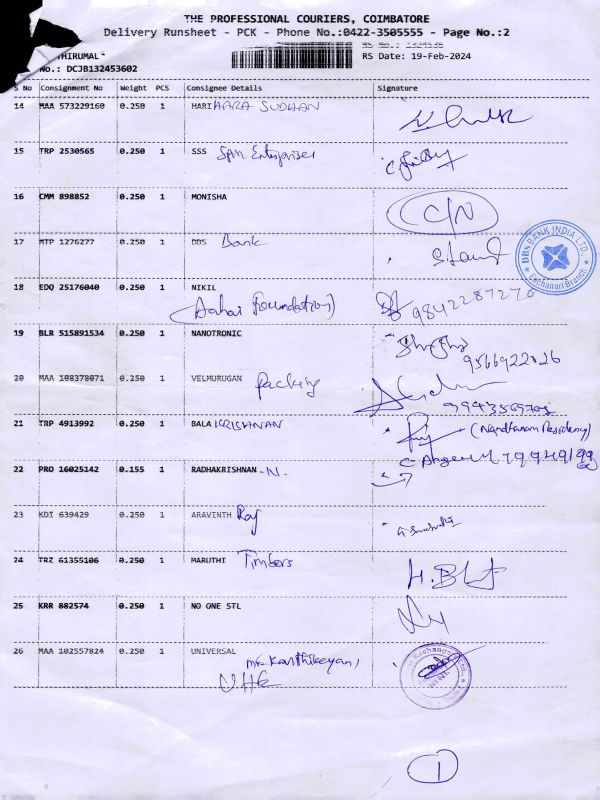 THE PROFESSIONAL COURIERS, COIMBATORE
Delivery Runsheet - PCK - Phone No.:0422-3505555 - Page No.:2
THIRUMAL
RS Date: 19-Feb-2024
No.: DCJB132453602
S No Consignment No Weight PCS Consignee Details Signature
14 MAA 573229160 0.250 1 HARI HARA SUDHAN
15 TRP 2530565 0.250 1 SSS SPM Enterprises
16 CMM 898852 0.250 1 MONISHA C/N
17 MTP 1276277 0.250 1 DBS Bank
DBS BANK INDIA LTD.
Eachanari Branch
18 EDQ 25176040 0.250 1 NIKIL
(Aahai Foundation) 9842287270
19 BLR 515891534 0.250 1 NANOTRONIC
9566922026
20 MAA 108378071 0.250 1 VELMURUGAN Packing
21 TRP 4913992 0.250 1 BALA KRISHNAN
(Nandhanam Residency)
22 PRO 16025142 0.155 1 RADHAKRISHNAN .N.
23 KDI 639429 0.250 1 ARAVINTH Raj
24 TRZ 61355106 0.250 1 MARUTHI Timbers
25 KRR 882574 0.250 1 NO ONE STL
26 MAA 102557824 0.250 1 UNIVERSAL
Mr. Karthikeyan,
1